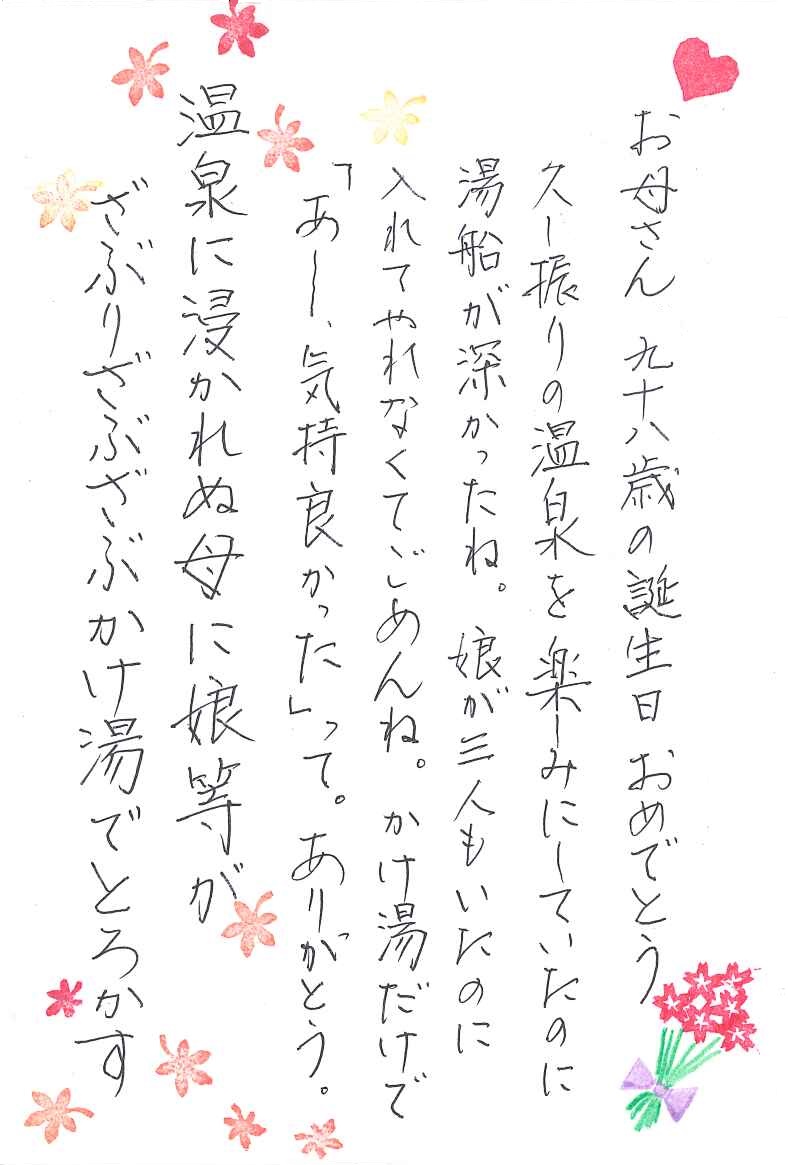 お母さん 九十八歳の誕生日 おめでとう
久し振りの温泉を楽しみにしていたのに
湯船が深かったね。娘が三人もいたのに
入れてやれなくてごめんね。かけ湯だけで
「あー、気持良かった」って。ありがとう。
温泉に浸かれぬ母に娘等が
ざぶりざぶざぶかけ湯でとろかす